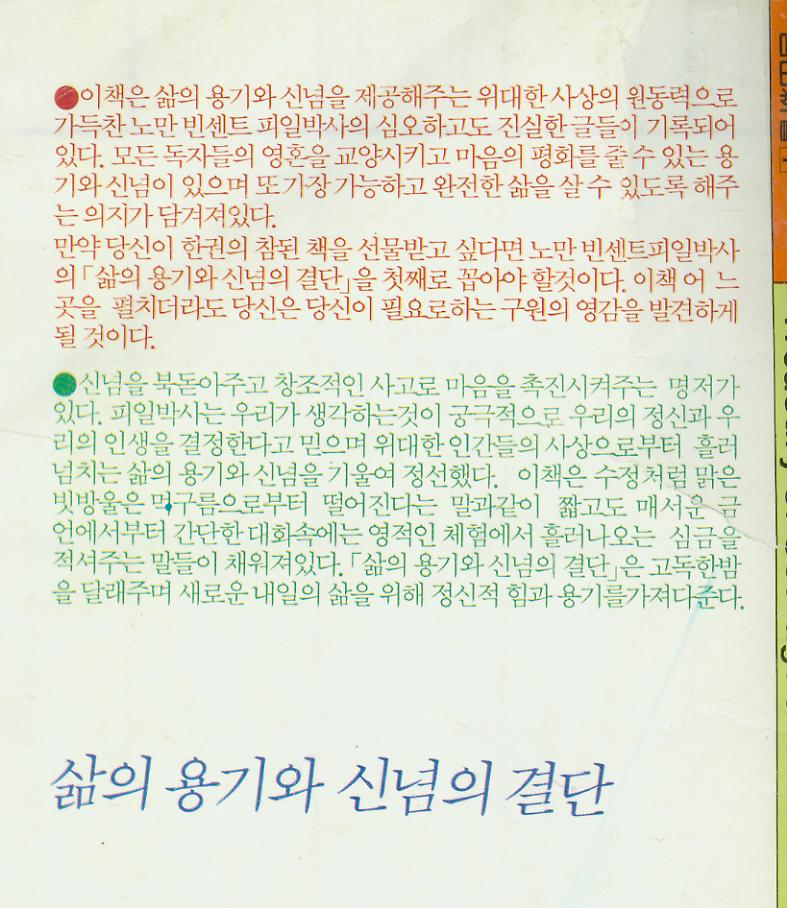 ●이책은 삶의 용기와 신념을 제공해주는 위대한 사상의 원동력으로
가득찬 노만 빈센트 피일박사의 심오하고도 진실한 글들이 기록되어
있다. 모든 독자들의 영혼을 교양시키고 마음의 평화를 줄 수 있는 용
기와 신념이 있으며 또 가장 가능하고 완전한 삶을 살 수 있도록 해주
는 의지가 담겨져있다.
만약 당신이 한권의 참된 책을 선물받고 싶다면 노만 빈센트피일박사
의 「삶의 용기와 신념의 결단」을 첫째로 꼽아야 할것이다. 이책 어 느
곳을 펼치더라도 당신은 당신이 필요로하는 구원의 영감을 발견하게
될 것이다.
●신념을 북돋아주고 창조적인 사고로 마음을 촉진시켜주는 명저가
있다. 피일박사는 우리가 생각하는것이 궁극적으로 우리의 정신과 우
리의 인생을 결정한다고 믿으며 위대한 인간들의 사상으로부터 흘러
넘치는 삶의 용기와 신념을 기울여 정선했다. 이책은 수정처럼 맑은
빗방울은 먹구름으로부터 떨어진다는 말과같이 짧고도 매서운 금
언에서부터 간단한 대화속에는 영적인 체험에서 흘러나오는 심금을
적셔주는 말들이 채워져있다. 「삶의 용기와 신념의 결단」은 고독한밤
을 달래주며 새로운 내일의 삶을 위해 정신적 힘과 용기를가져다준다.
삶의 용기와 신념의 결단